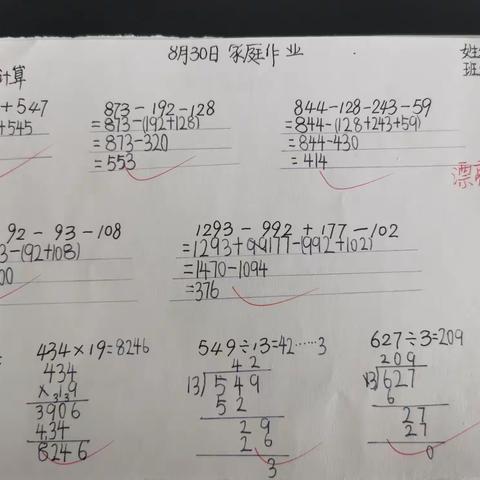 8月30日 家庭作业
计算
+547
+545
873-192-128
=873-(192+128)
=873-320
=553
844-128-243-59
=844-(128+243+59)
=844-430
=414
漂
92-93-108
3-(92+108)
00
1293-992+177-102
=1470-1094
=376
434×19=8246
434
×19
3906
434
8246
549÷13=42……3
42
13)549
52
29
26
3
627÷3=209
209
3)627
6
27
27
0